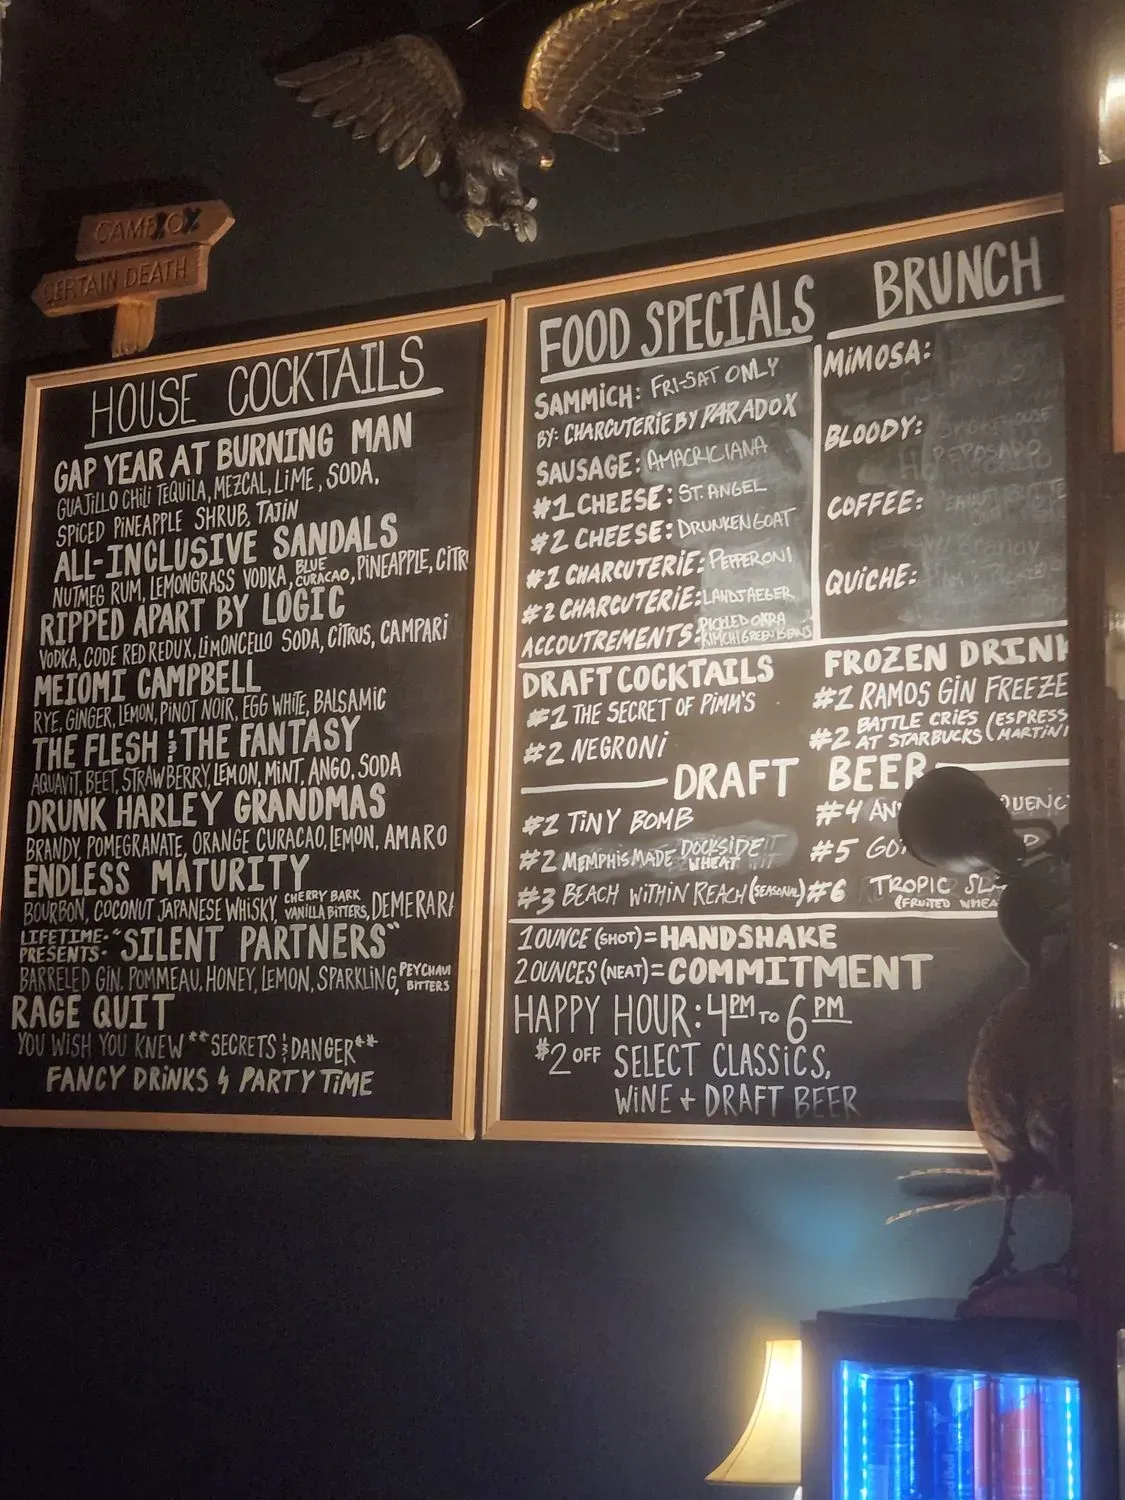 CAMEXOX
CERTAIN DEATH
HOUSE COCKTAILS
GAP YEAR AT BURNING MAN
GUAJILLO CHILI TEQUILA, MEZCAL, LIME, SODA,
SPICED PINEAPPLE SHRUB, TAJIN
ALL-INCLUSIVE SANDALS
NUTMEG RUM, LEMONGRASS VODKA, BLUE CURACAO, PINEAPPLE, CITR
RIPPED APART BY LOGIC
VODKA, CODE RED REDUX, LIMONCELLO SODA, CITRUS, CAMPARI
MEIOMI CAMPBELL
RYE, GINGER, LEMON, PINOT NOIR, EGG WHITE, BALSAMIC
THE FLESH & THE FANTASY
AQUAVIT, BEET, STRAWBERRY, LEMON, MINT, ANGO, SODA
DRUNK HARLEY GRANDMAS
BRANDY, POMEGRANATE, ORANGE CURACAO, LEMON, AMARO
ENDLESS MATURITY
BOURBON, COCONUT JAPANESE WHISKY, CHERRY BARK VANILLA BITTERS, DEMERARA
LIFETIME PRESENTS- "SILENT PARTNERS"
BARRELED GIN, POMMEAU, HONEY, LEMON, SPARKLING, PEYCHAU BITTERS
RAGE QUIT
YOU WISH YOU KNEW **SECRETS & DANGER**
FANCY DRINKS 4 PARTY TIME
FOOD SPECIALS
SAMMICH: FRI-SAT ONLY
BY: CHARCUTERIE BY PARADOX
SAUSAGE: AMACRICIANA
#1 CHEESE: ST. ANGEL
#2 CHEESE: DRUNKEN GOAT
#1 CHARCUTERIE: PEPPERONI
#2 CHARCUTERIE: LANDJAEGER
ACCOUTREMENTS: PICKLED OKRA
KIMCHI GREEN BEANS
BRUNCH
MIMOSA:
BLOODY:
COFFEE:
QUICHE:
DRAFT COCKTAILS
#1 THE SECRET OF PIMM'S
#2 NEGRONI
FROZEN DRINK
#1 RAMOS GIN FREEZE
#2 BATTLE CRIES AT STARBUCKS (ESPRESS MARTINI
DRAFT BEER
#1 TINY BOMB
#2 MEMPHIS MADE DOCKSIDE WHEAT
#3 BEACH WITHIN REACH (SEASONAL)
#4
#5
#6 TROPIC
(FRUITED WHEA
1 OUNCE (SHOT) = HANDSHAKE
2 OUNCES (NEAT) = COMMITMENT
HAPPY HOUR: 4PM TO 6PM
$2 OFF SELECT CLASSICS,
WINE + DRAFT BEER